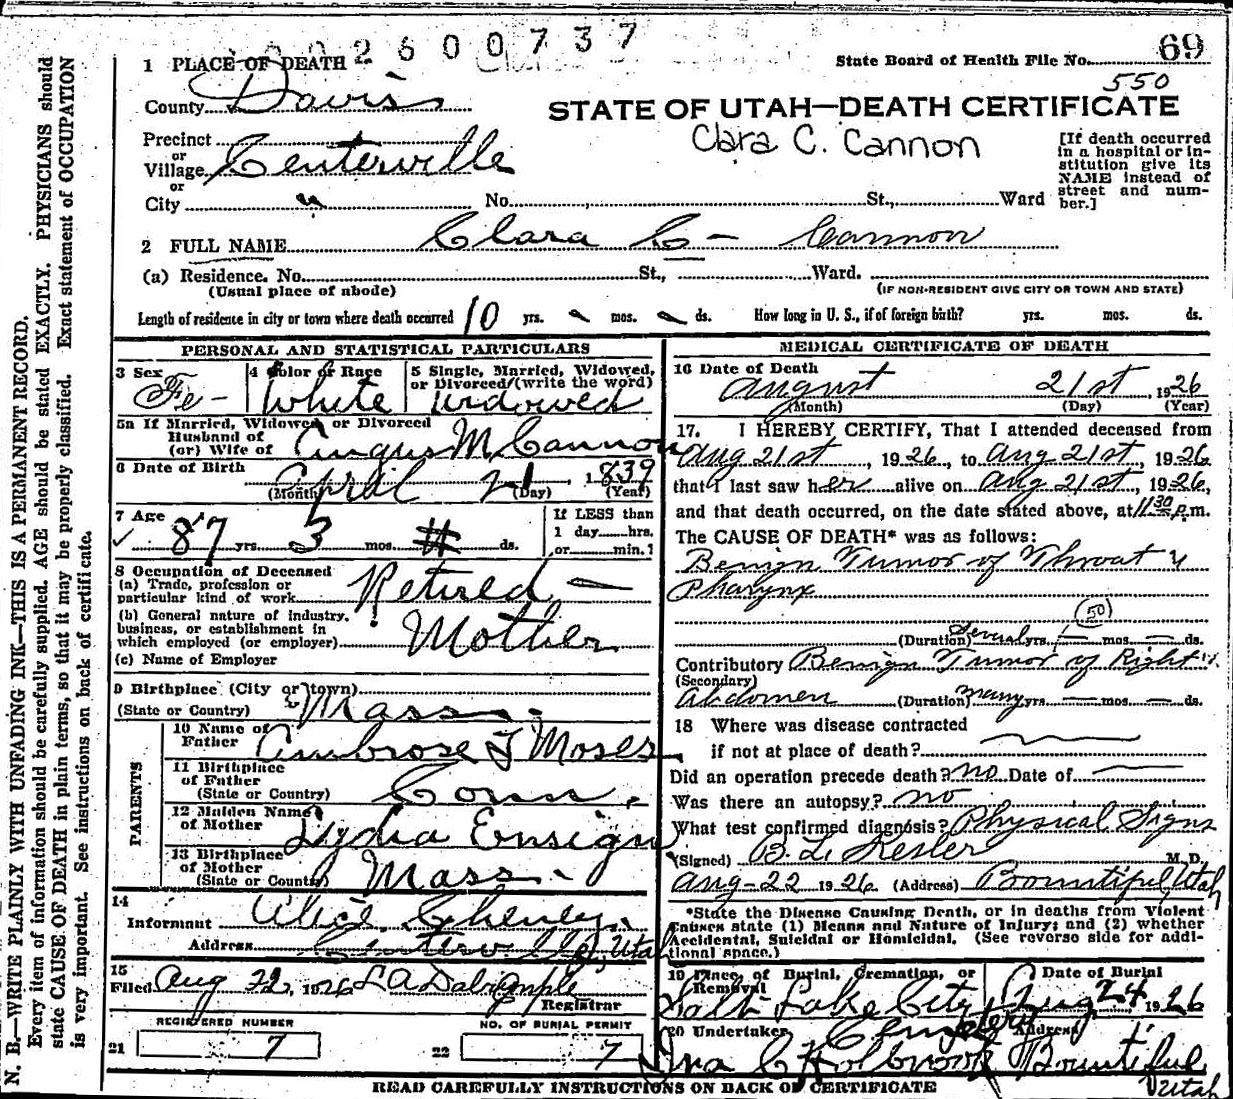 002600737
69
State Board of Health File No.
550
1 PLACE OF DEATH
County Davis
STATE OF UTAH—DEATH CERTIFICATE
Clara C. Cannon
Precinct
or
Village Centerville
or
City "
No. St., Ward
[If death occurred
in a hospital or in-
stitution give its
NAME instead of
street and num-
ber.]
2 FULL NAME Clara C - Cannon
(a) Residence. No. St., Ward.
(Usual place of abode)
(IF NON-RESIDENT GIVE CITY OR TOWN AND STATE)
Length of residence in city or town where death occurred 10 yrs. mos. ds. How long in U. S., if of foreign birth? yrs. mos. ds.
PERSONAL AND STATISTICAL PARTICULARS
3 Sex Fe-
4 Color or Race White
5 Single, Married, Widowed,
or Divorced (write the word)
widowed
5a If Married, Widowed or Divorced
Husband of
(or) Wife of Angus M Cannon
6 Date of Birth April 21, 1839
(Month) (Day) (Year)
7 Age 87 yrs. 3 mos. ds.
If LESS than
1 day hrs.
or min.?
8 Occupation of Deceased
(a) Trade, profession or
particular kind of work Retired —
(b) General nature of industry,
business, or establishment in
which employed (or employer) Mother
(c) Name of Employer
9 Birthplace (City or town)
(State or Country) Mass.
PARENTS
10 Name of
Father Ambrose T Moses
11 Birthplace
of Father
(State or Country) Conn.
12 Maiden Name
of Mother Lydia Ensign
13 Birthplace
of Mother
(State or Country) Mass.
14
Informant Alice Cheney
Address Centerville, Utah
15
Filed Aug 22, 1926 L A Dalrymple
Registrar
REGISTERED NUMBER
21 7
NO. OF BURIAL PERMIT
22 7
MEDICAL CERTIFICATE OF DEATH
16 Date of Death
August 21st, 1926
(Month) (Day) (Year)
17. I HEREBY CERTIFY, That I attended deceased from
Aug 21st, 1926, to Aug 21st, 1926
that I last saw her alive on Aug 21st, 1926,
and that death occurred, on the date stated above, at 11:30 p.m.
The CAUSE OF DEATH* was as follows:
Benign Tumor of Throat &
Pharynx
50
(Duration) several yrs. — mos. — ds.
Contributory Benign Tumor of Right
(Secondary)
Abdomen (Duration) many yrs. — mos. — ds.
18 Where was disease contracted
if not at place of death?
Did an operation precede death? no Date of —
Was there an autopsy? no
What test confirmed diagnosis? Physical Signs
(Signed) B. L. Kesler M. D.
Aug-22 1926 (Address) Bountiful, Utah
*State the Disease Causing Death, or in deaths from Violent
Causes state (1) Means and Nature of Injury; and (2) whether
Accidental, Suicidal or Homicidal. (See reverse side for addi-
tional space.)
19 Place of Burial, Cremation, or
Removal
Salt Lake City
Cemetery
Date of Burial
Aug 24 1926
20 Undertaker Address
Ira C Holbrook Bountiful
Utah
READ CAREFULLY INSTRUCTIONS ON BACK OF CERTIFICATE
N. B.—WRITE PLAINLY WITH UNFADING INK—THIS IS A PERMANENT RECORD.
Every item of information should be carefully supplied. AGE should be stated EXACTLY. PHYSICIANS should
state CAUSE OF DEATH in plain terms, so that it may be properly classified. Exact statement of OCCUPATION
is very important. See instructions on back of certificate.